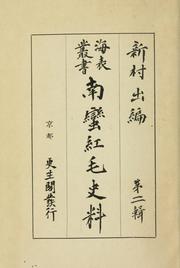 新村出編
海表叢書
南蠻紅毛史料
第二輯
京都
更生閣發行